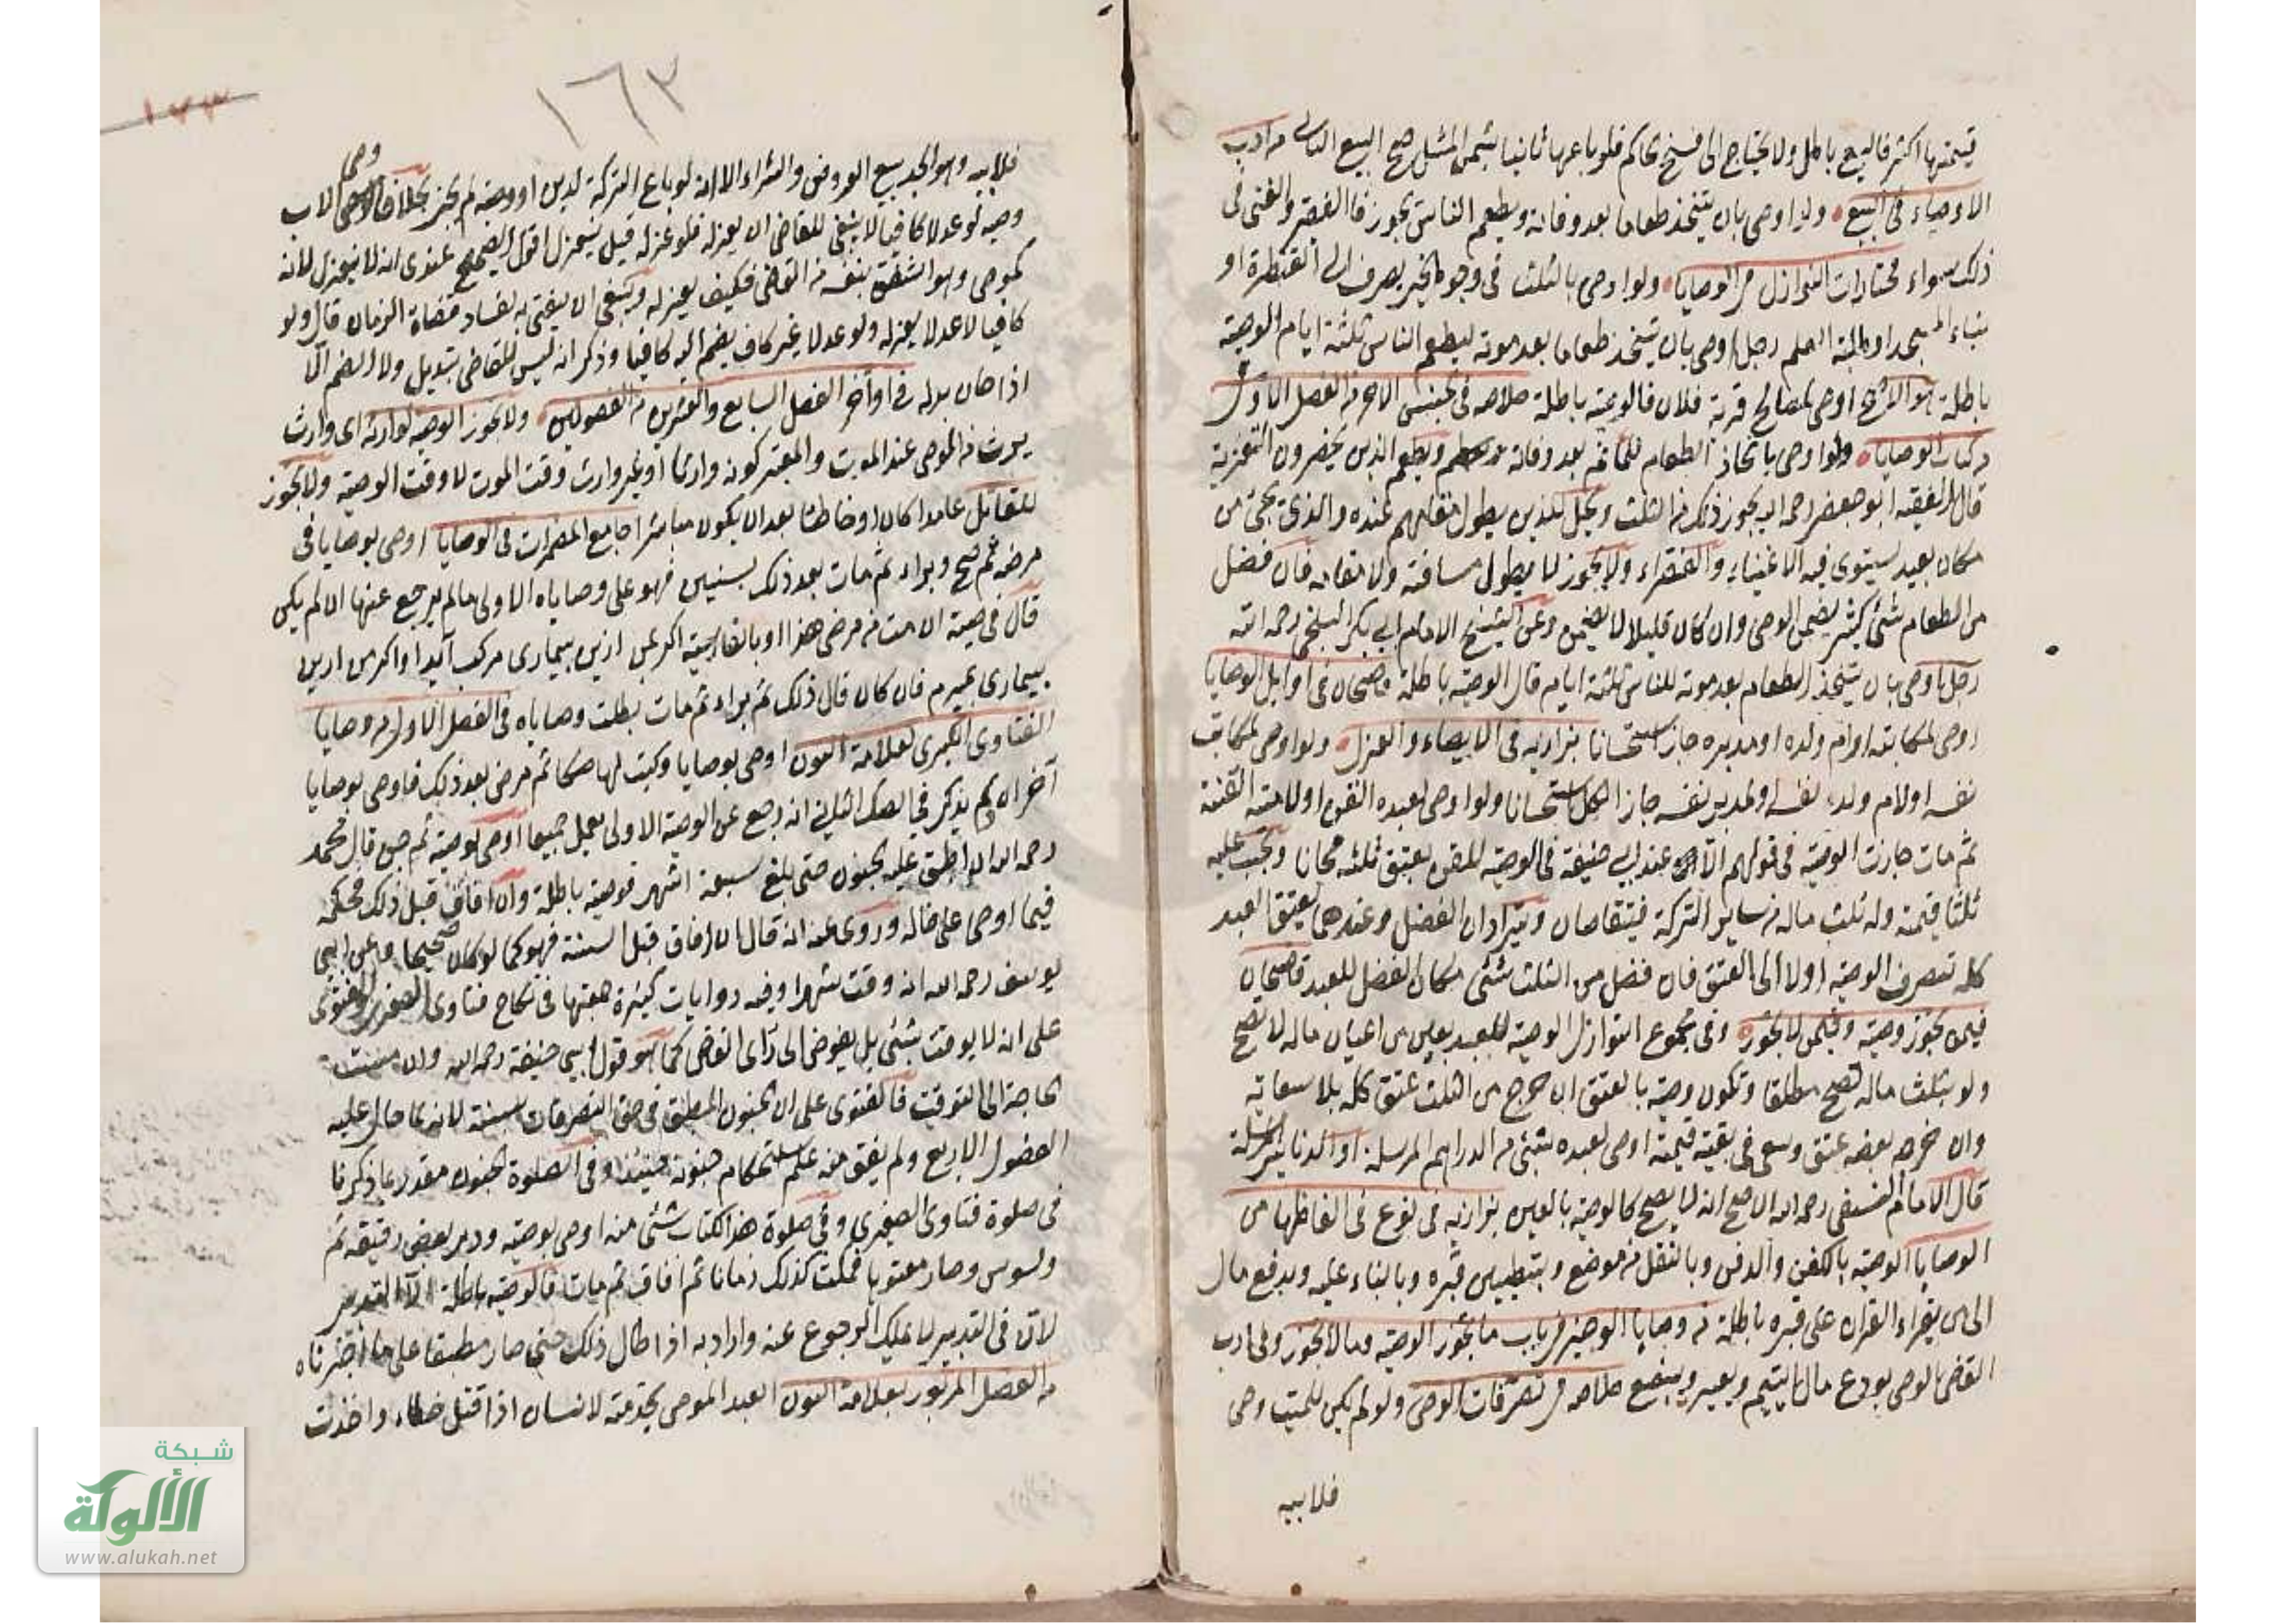 قيمتها اكثر فالبيع باطل ولا يحتاج الى فسخ حاكم فلو باعها ثانيا بثمن المثل صح البيع الثانى من ادب
الاوصياء فى البيع ولو اوصى بان يتخذ طعاما بعد وفاته ويطعم الناس يجوز فالفقير والغنى فى
ذلك سواء مختارات النوازل من الوصايا ولو اوصى بالثلث فى وجوه الخير يصرف الى القنطرة او
بناء المسجد او طلبة العلم رجل اوصى بان يتخذ طعاما بعد موته ليطعم الناس ثلثة ايام الوصية
باطلة هو الاصح اوصى لمصالح قرية فلان فالوصية باطلة خلاصه فى جنس الاخر من الفصل الاول
من كتاب الوصايا ولو اوصى باتخاذ الطعام للماتم بعد وفاته ويطعم الذين يحضرون التعزية
قال الفقيه ابو جعفر رحمه الله يجوز ذلك من الثلث ويحل للذين يطول مقامهم عنده والذى يجئ من
مكان بعيد يستوى فيه الاغنياء والفقراء ولا يجوز لمن لا يطول مسافته ولا مقامه فان فضل
من الطعام شئ كثير يضمن الوصى وان كان قليلا لا يضمن وعن الشيخ الامام ابى بكر البلخى رحمه الله
رجل اوصى بان يتخذ الطعام بعد موته للناس ثلثة ايام قال الوصية باطلة قاضيخان فى اوايل الوصايا
اوصى لمكاتبه او ام ولده او مدبره جاز استحسانا بزازيه فى الايصاء والعزل ولو اوصى لمكاتب
نفسه او لام ولد نفسه او لمدبر نفسه جاز الكل استحسانا ولو اوصى لعبده القن او لامته القنة
ثم مات جازت الوصية فى قولهم الا ان عند ابى حنيفة فى الوصية للقن يعتق ثلثه مجانا ويجب عليه
ثلثا قيمته وله ثلث ماله من ساير التركة فيتقاصان ويترادان الفضل وعندهما يعتق العبد
كله تصرف الوصية اولا الى العتق فان فضل من الثلث شئ كان الفضل للعبد قاضيخان
فيمن يجوز وصيته وفيمن لا يجوز وفى مجموع النوازل الوصية للعبد بعين من اعيان ماله لا تصح
ولو بثلث ماله تصح مطلقا وتكون وصية بالعتق ان خرج من الثلث عتق كله بلا سعاية
وان خرج بعضه عتق وسعى فى بقية قيمته اوصى لعبده بشئ من الدراهم المرسلة او الدنانير المرسلة
قال الامام النسفى رحمه الله الاصح انه لا يصح كالوصية بالعين بزازيه فى نوع فى الفاظها من
الوصايا الوصية بالكفن والدفن وبالنقل من موضع وبتطيين قبره وبالبناء عليه وبدفع مال
الى من يقراء القران على قبره باطلة من وصايا الوجيز من باب ما يجوز الوصية وما لا يجوز وفى ادب
القاضى الوصى يودع مال اليتيم ويعير ويبضع خلاصه فى تصرفات الوصى ولو لم يكن للميت وصى
فلابيه
١٦٣
١٧٣
فلابيه وهو الجد بيع العروض والشراء الا انه لو باع التركة لدين او وصية لم يجز بخلاف وصى الاب
وصيه لو عدلا كافيا لا ينبغى للقاضى ان يعزله فلو عزله قيل ينعزل اقول الصحيح عندى انه لا ينعزل لانه
كموصى وهو اشفق بنفسه من القاضى فكيف يعزله وينبغى ان يفتى به لفساد قضاة الزمان قال ولو
كافيا لا عدلا يعزله ولو عدلا غير كاف يضم اليه كافيا وذكر انه ليس للقاضى تبديل ولا الضم الا
اذا خان بدله فى اواخر الفصل السابع والعشرين من الفصولين ولا يجوز الوصية لوارثه اى وارث
يرث من الموصى عند الموت والمعتبر كونه وارثا او غير وارث وقت الموت لا وقت الوصية ولا يجوز
للقاتل عامدا كان او خاطئا بعد ان يكون مباشرا جامع المضمرات فى الوصايا اوصى بوصايا فى
مرضه ثم صح وبراء ثم مات بعد ذلك بسنين فهو على وصاياه الاولى ما لم يرجع عنها ان لم يكن
قال فى وصيته ان مت من مرضى هذا او بالفارسية اكر من ازين بيمارى مرك آيد او اكر من ازين
بيمارى بميرم فان كان قال ذلك ثم براء ثم مات بطلت وصاياه فى الفصل الاول من وصايا
الفتاوى الكبرى لعلامة النون اوصى بوصايا وكتب لها صكا ثم مرض بعد ذلك فاوصى بوصايا
آخر ان لم يذكر فى الصك الثانى انه رجع عن الوصية الاولى يعمل جميعا اوصى بوصية ثم جن قال محمد
رحمه الله ان اطبق عليه الجنون حتى بلغ سبعة اشهر فوصيته باطلة وان افاق قبل ذلك فحكمه
فيما اوصى على حاله وروى عنه انه قال ان افاق قبل السنة فهو كما لو كان صحيحا وعن ابى
يوسف رحمه الله انه وقت شهرا وفيه روايات كثيرة فى نكاح فتاوى الصغرى والفتوى
على انه لا يوقت بشئ بل يفوض الى راى القاضى كما هو قول ابى حنيفة رحمه الله وان مست
الحاجة الى التوقيت فالفتوى على ان الجنون المطبق فى حق التصرفات سنة لانه لما حال عليه
الفصول الاربع ولم يفق منه علم استحكام جنونه حينئذ وفى الصلوة الجنون مقدر بما ذكرنا
فى صلوة فتاوى الصغرى وفى صلوة هذا الكتاب شئ منه اوصى بوصية ودبر بعض رقيقه ثم
وسوس وصار معتوها فمكث كذلك زمانا ثم افاق ثم مات فالوصية باطلة الا التدبير
لان فى التدبير لا يملك الرجوع عنه واراد به اذا طال ذلك حتى صار مطبقا على ما اخترناه
من الفصل المزبور بعلامة النون العبد الموصى بخدمته لانسان اذا قتل خطاء واخذت
شبكة
الألوكة
www.alukah.net